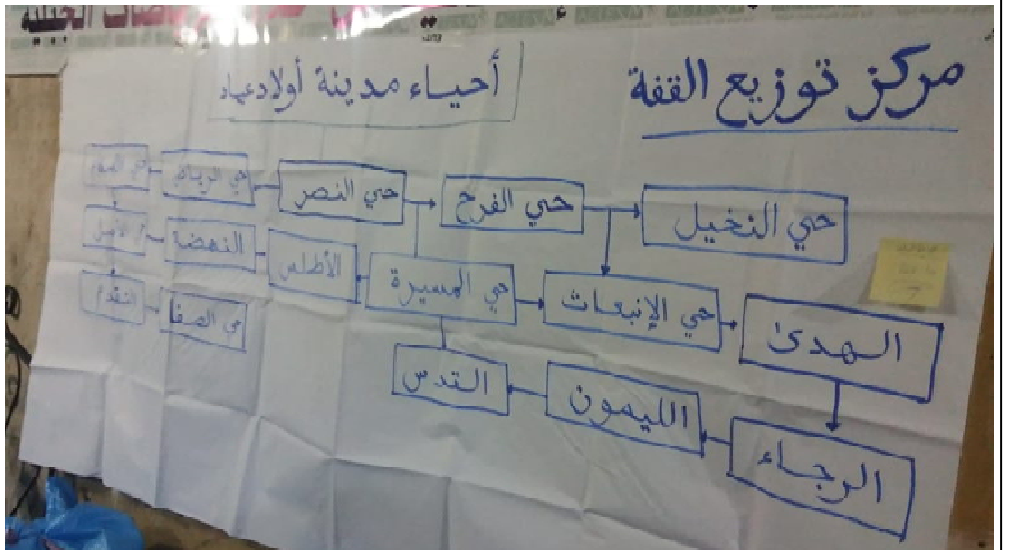 مركز توزيع القفة
أحياء مدينة أولاد عياد
حي النخيل
حي الفرح
حي النصر
حي الرياض
حي السلام
الهدى
حي الإنبعاث
حي المسيرة
الأطلس
النهضة
حي الأمل
الرجاء
الليمون
القدس
حي الصفا
التقدم